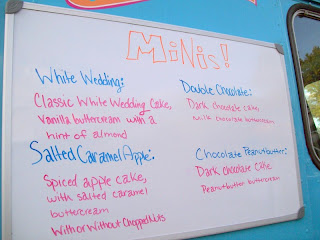 Minis!
White Wedding:
Classic White Wedding Cake,
Vanilla buttercream with a
hint of almond
Salted Caramel Apple:
Spiced apple cake,
with salted caramel
buttercream
With or Without Chopped Nuts
Double Chocolate:
Dark chocolate cake,
milk chocolate buttercream
Chocolate Peanutbutter:
Dark chocolate cake
Peanutbutter buttercream